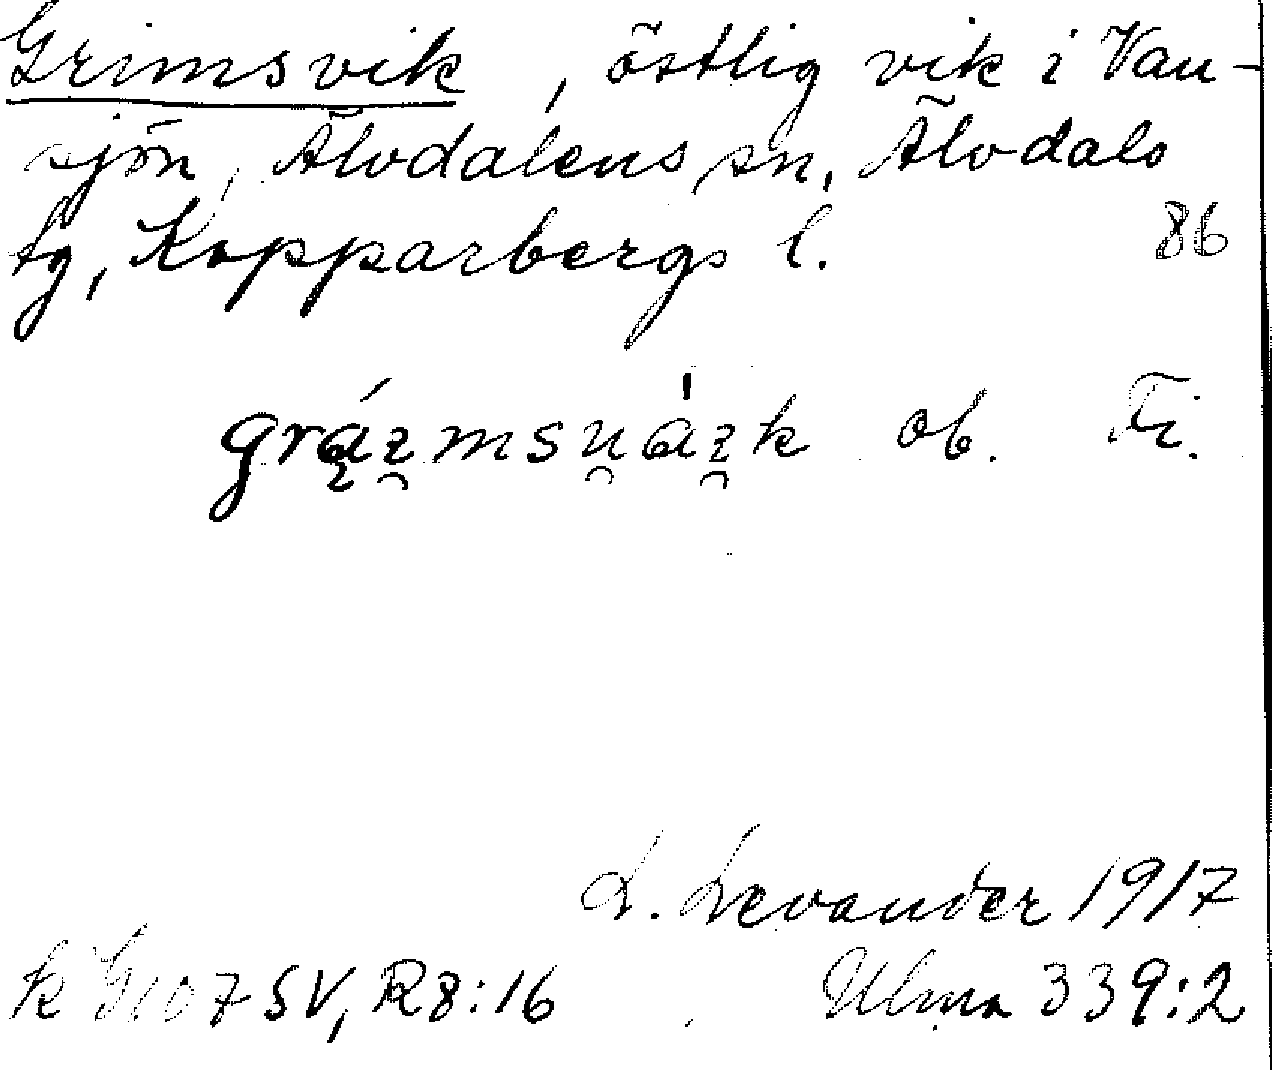 Grimsvik, östlig vik i Van-
sjön, Älvdalens sn, Älvdals
tg, Kopparbergs l. 86
ob. Fi.
L. Levander 1917
k G.107 SV, R8:16 Ulma 339:2